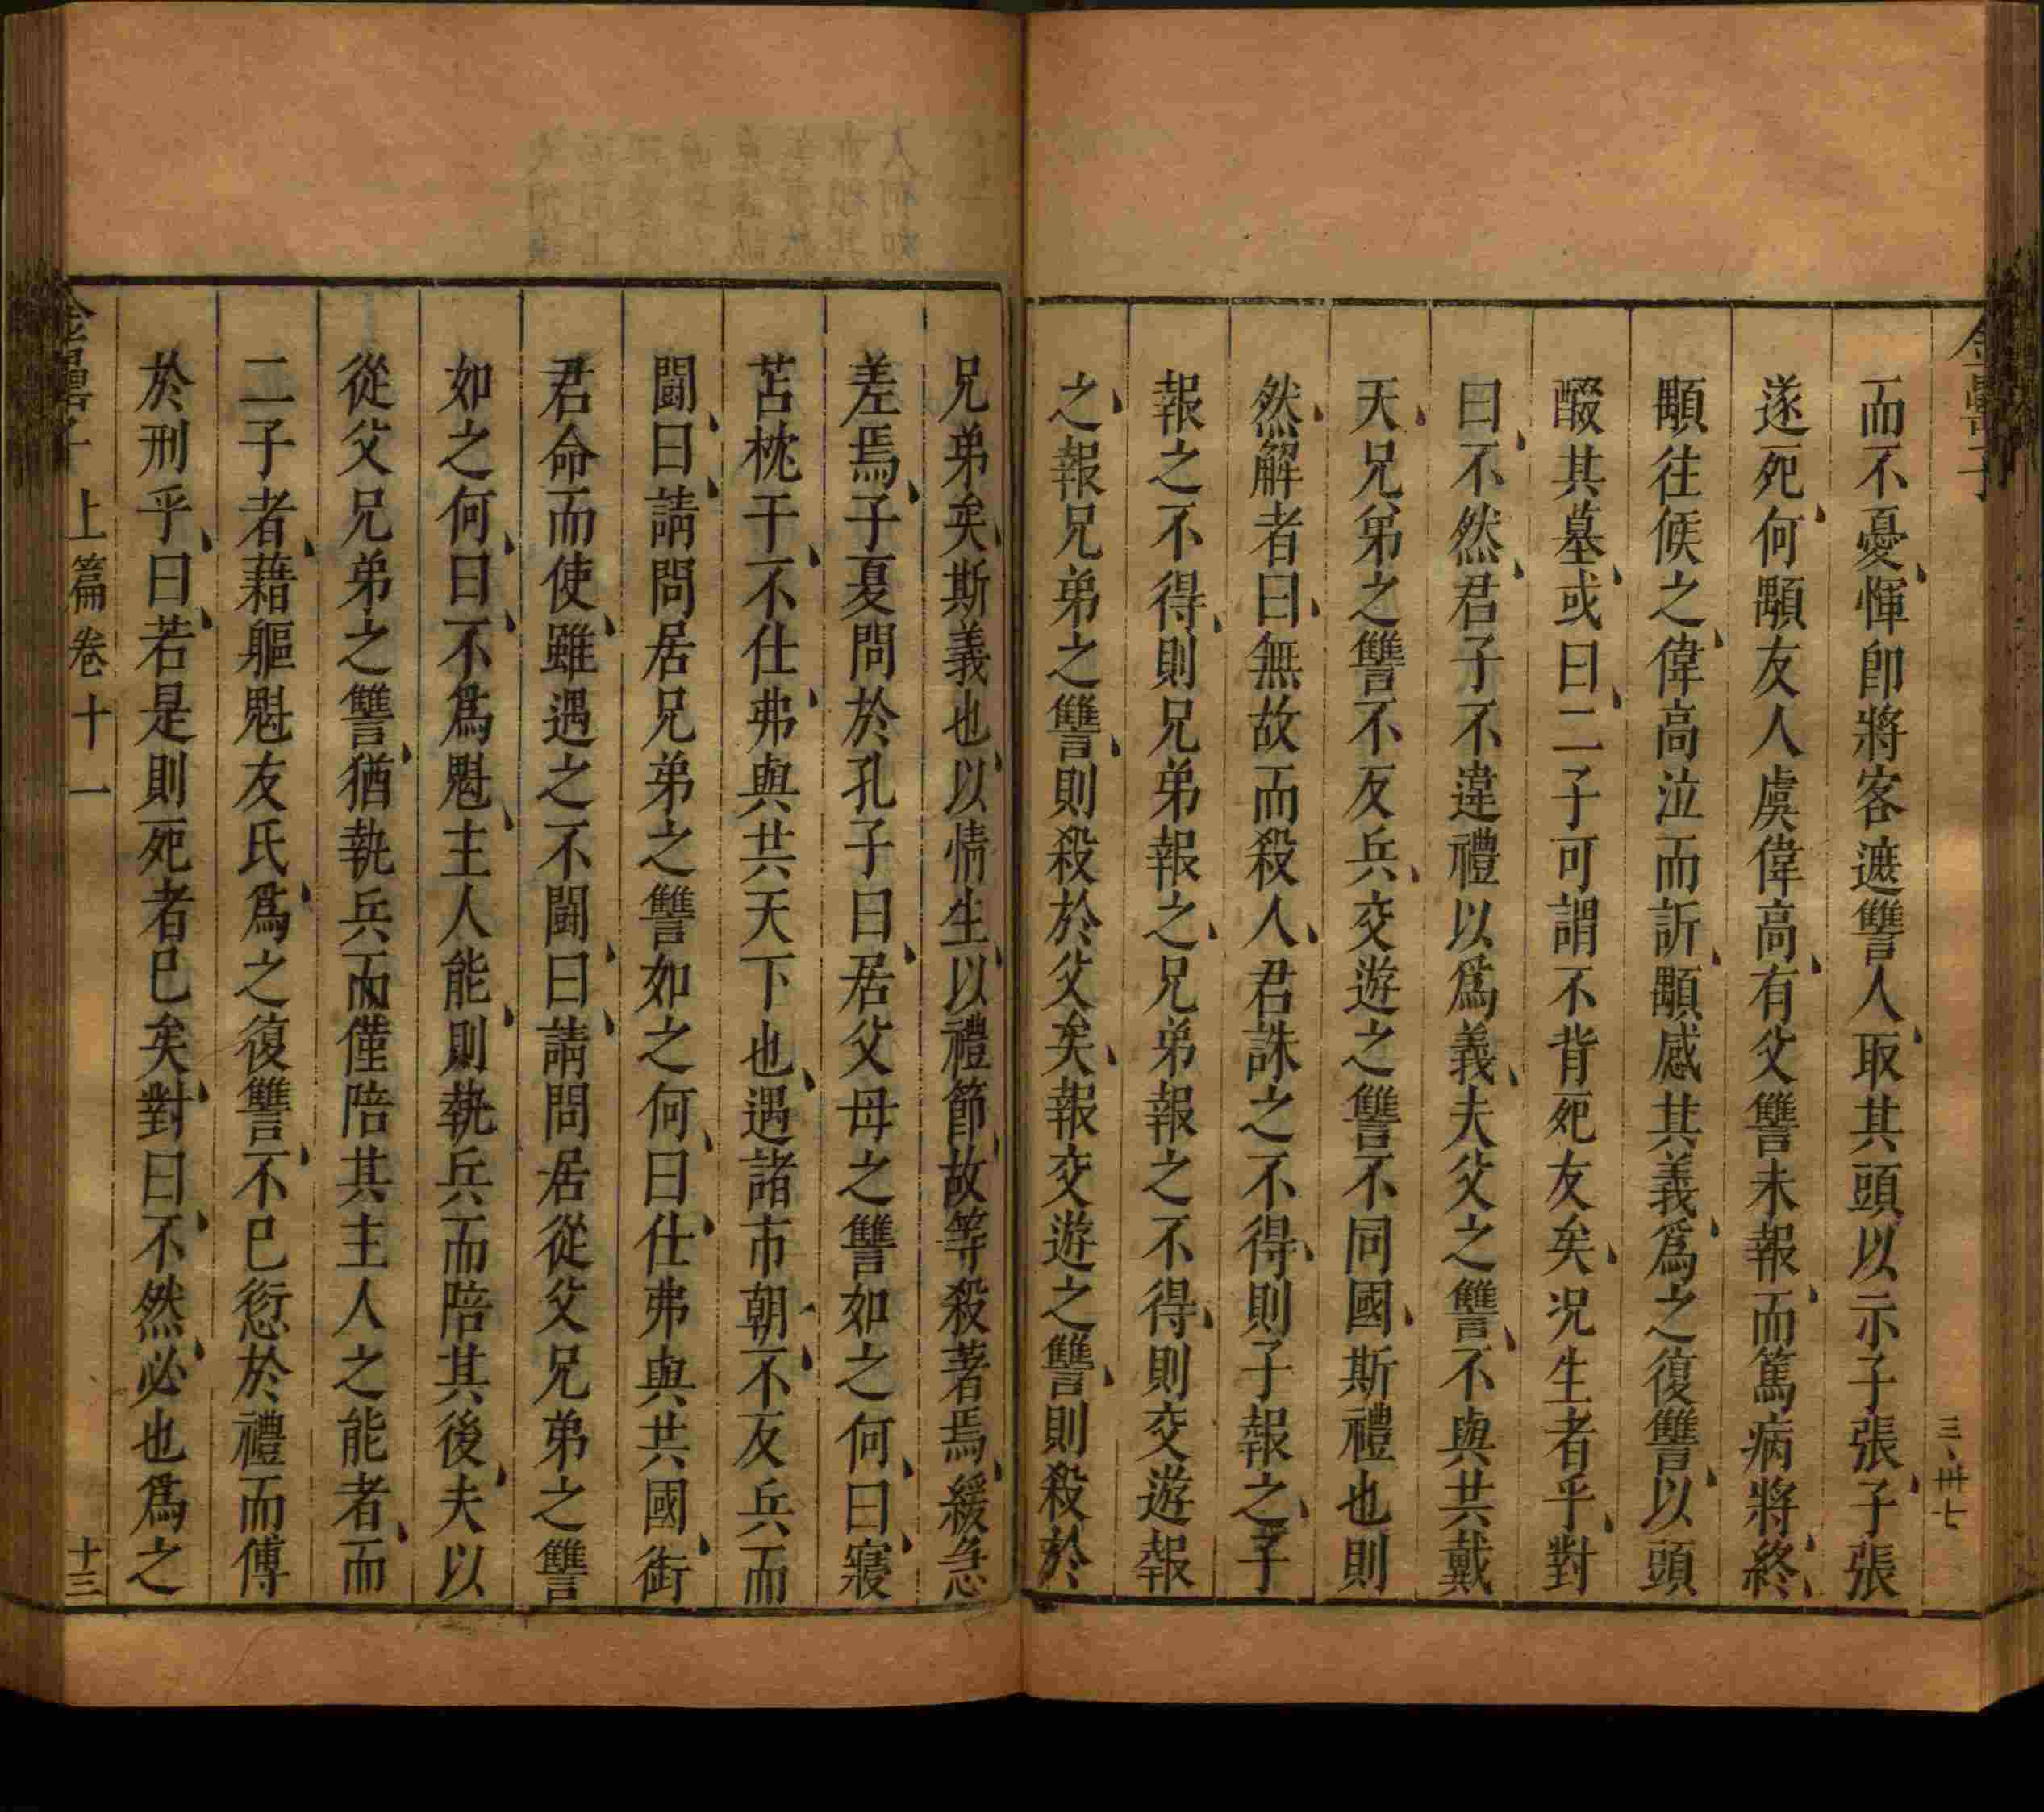 而不憂惲卽將客遮讐人取其頭以示子張子張
遂死何顒友人虞偉高有父讐未報而篤病將終
顒往候之偉高泣而訴顒感其義爲之復讐以頭
醊其墓或曰二子可謂不背死友矣况生者乎對
曰不然君子不違禮以爲義夫父之讐不與共戴
天兄弟之讐不反兵交遊之讐不同國斯禮也則
然解者曰無故而殺人君誅之不得則子報之子
報之不得則兄弟報之兄弟報之不得則交遊報
之報兄弟之讐則殺於父矣報交遊之讐則殺於
三、卌七
兄弟矣斯義也以情生以禮節故等殺著焉緩急
差焉子夏問於孔子曰居父母之讐如之何曰寢
苫枕干不仕弗與共天下也遇諸市朝不反兵而
鬪曰請問居兄弟之讐如之何曰仕弗與共國銜
君命而使雖遇之不鬪曰請問居從父兄弟之讐
如之何曰不爲魁主人能則執兵而陪其後夫以
從父兄弟之讐猶執兵而僅陪其主人之能者而
二子者藉軀魁友氏爲之復讐不已愆於禮而傅
於刑乎曰若是則死者已矣對曰不然必也爲之
金罍子 上篇卷十一 十三